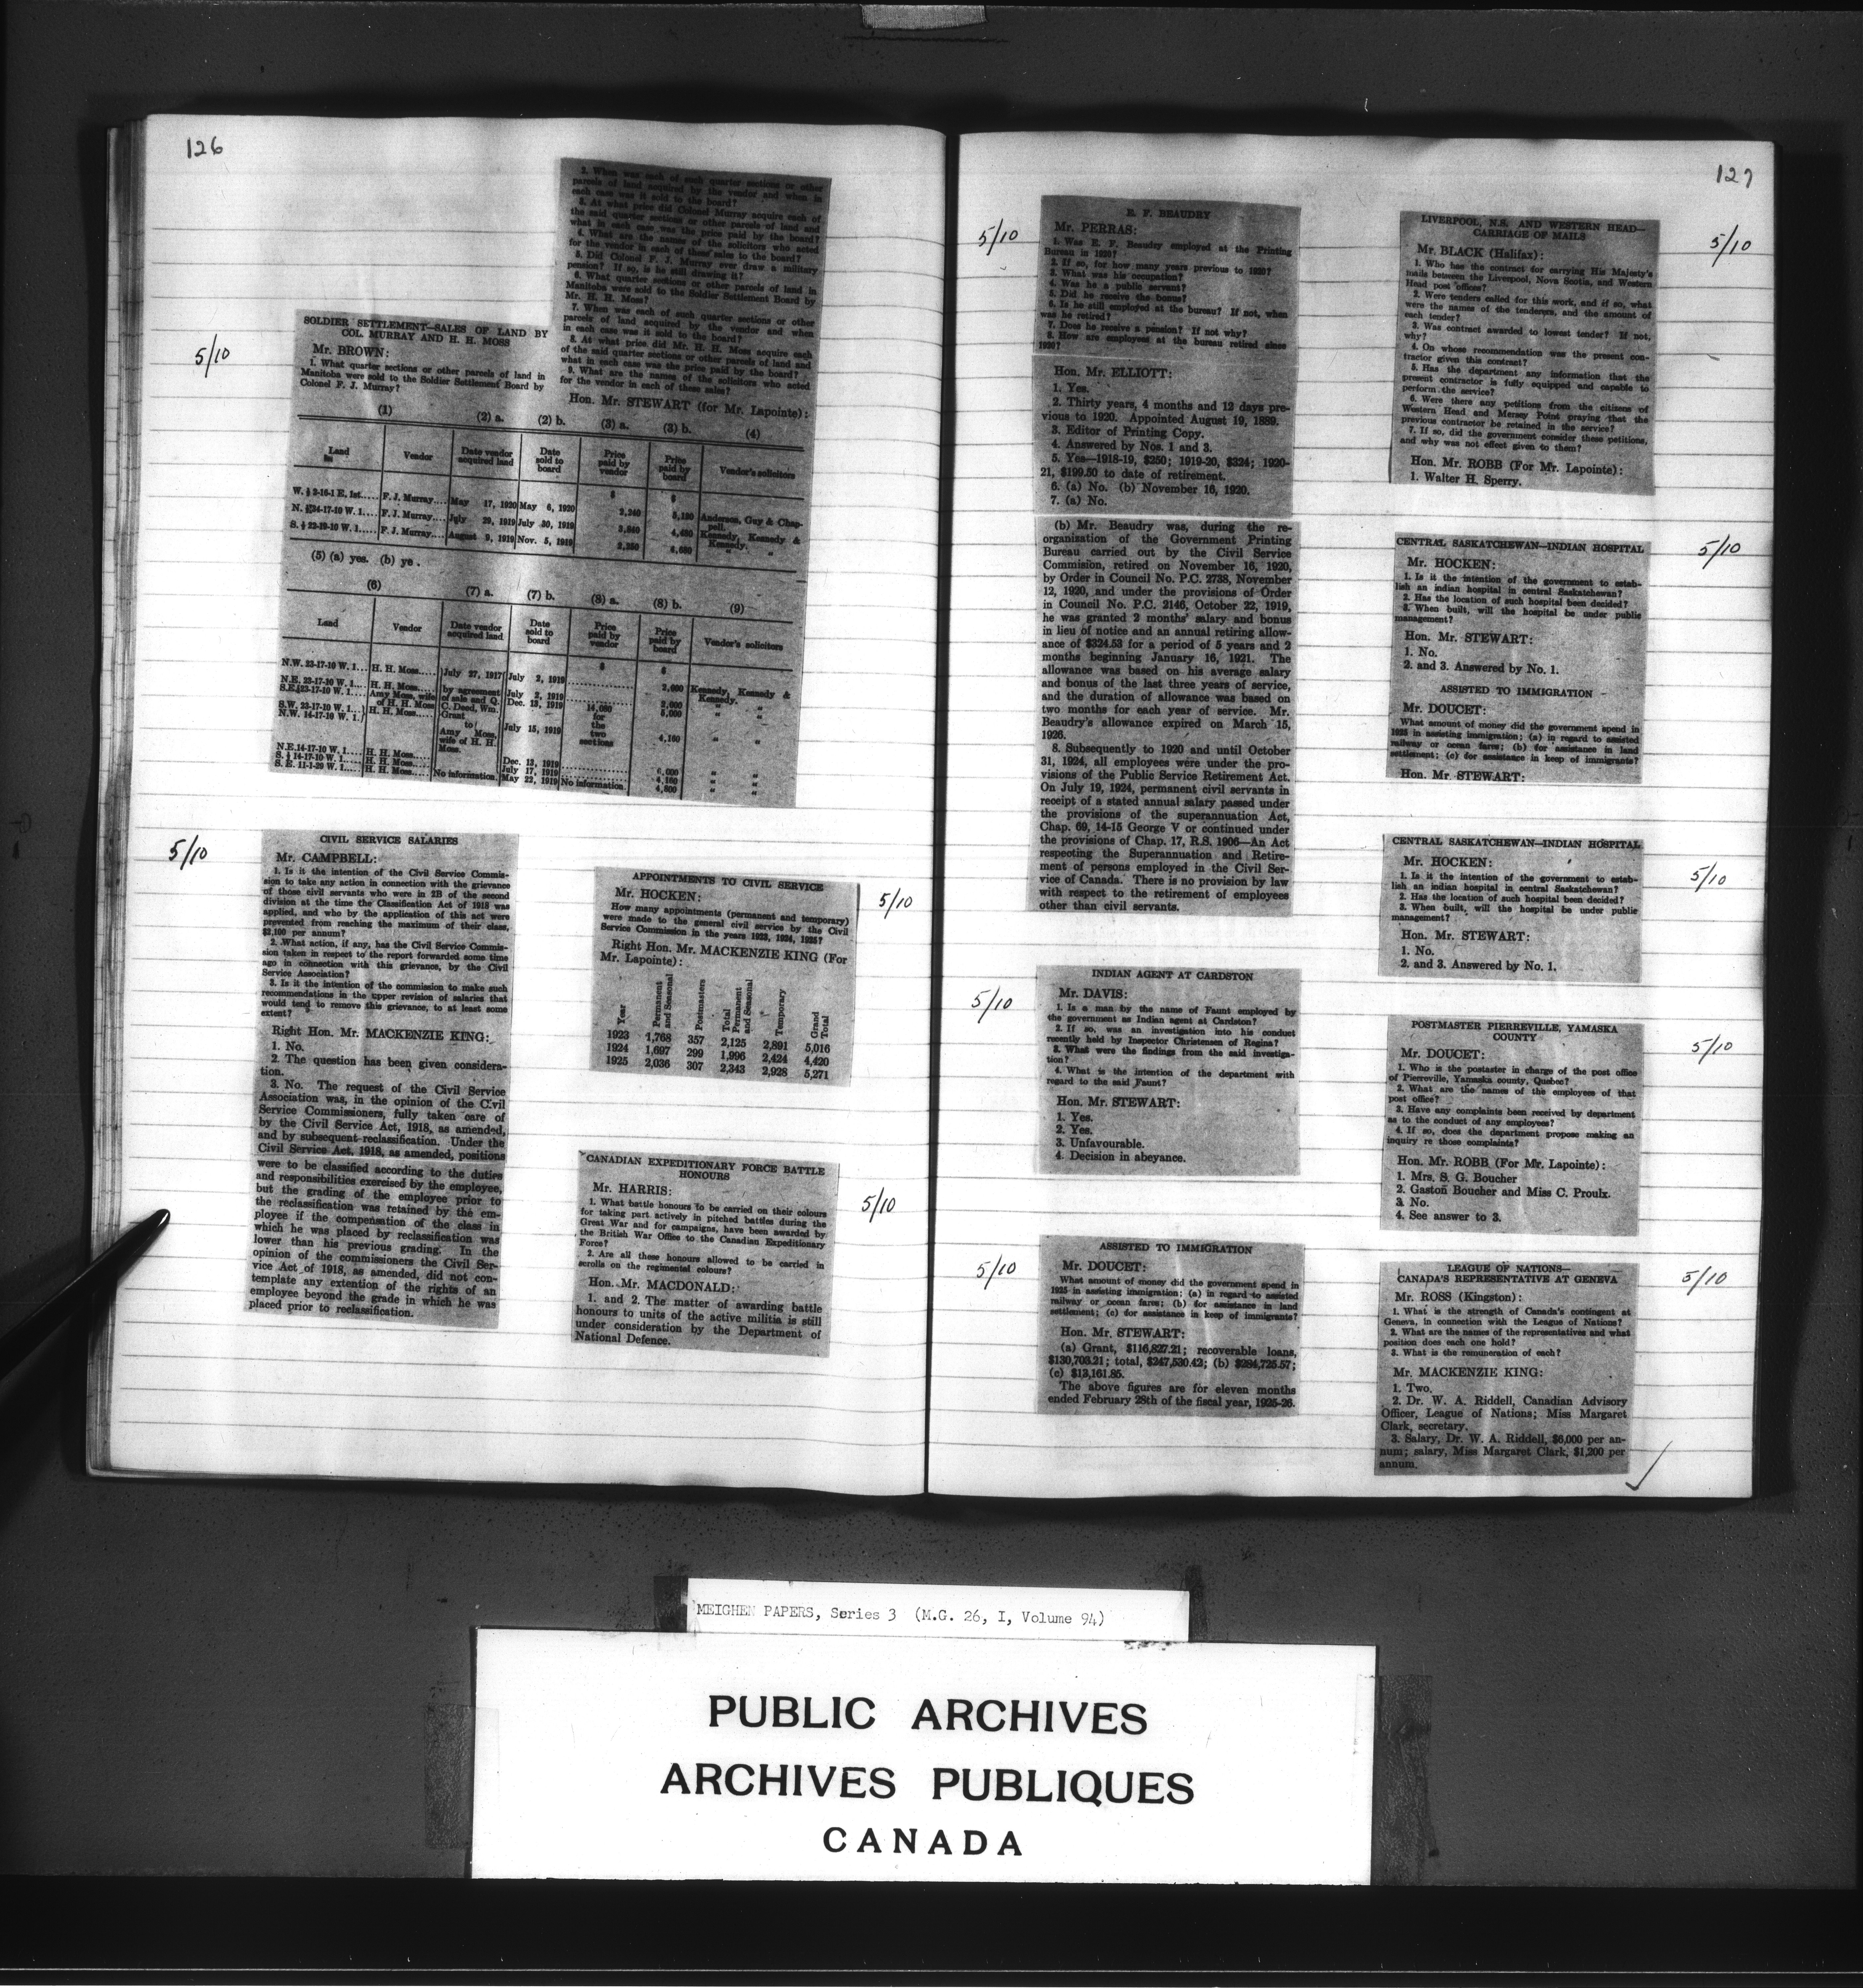 126
5/10
SOLDIER SETTLEMENT—SALES OF LAND BY
COL. MURRAY AND H. H. MOSS
Mr. BROWN:
1. What quarter sections or other parcels of land in
Manitoba were sold to the Soldier Settlement Board by
Colonel F. J. Murray?
2. When was each of such quarter sections or other
parcels of land acquired by the vendor and when in
each case was it sold to the board?
3. At what price did Colonel Murray acquire each of
the said quarter sections or other parcels of land and
what in each case was the price paid by the board?
4. What are the names of the solicitors who acted
for the vendor in each of these sales to the board?
5. Did Colonel F. J. Murray ever draw a military
pension? If so, is he still drawing it?
6. What quarter sections or other parcels of land in
Manitoba were sold to the Soldier Settlement Board by
Mr. H. H. Moss?
7. When was each of such quarter sections or other
parcels of land acquired by the vendor and when
in each case was it sold to the board?
8. At what price did Mr. H. H. Moss acquire each
of the said quarter sections or other parcels of land and
what in each case was the price paid by the board?
9. What are the names of the solicitors who acted
for the vendor in each of these sales?
Hon. Mr. STEWART (for Mr. Lapointe):
(1) (2) a. (2) b. (3) a. (3) b. (4)
Land Vendor Date vendor acquired land Date sold to board Price paid by vendor Price paid by board Vendor's solicitors
$ $
F. J. Murray.... May 17, 1920 May 6, 1920 Anderson, Guy & Chap-
pell.
F. J. Murray.... July 29, 1919 July 30, 1919 Kennedy, Kennedy &
Kennedy.
F. J. Murray.... August 9, 1919 Nov. 5, 1919 "
(5) (a) yes. (b) ye .
(6) (7) a. (7) b. (8) a. (8) b. (9)
Land Vendor Date vendor acquired land Date sold to board Price paid by vendor Price paid by board Vendor's solicitors
$ $
N.W. 23-17-10 W. 1.... H. H. Moss..... July 27, 1917 July 2, 1919 2,600 Kennedy, Kennedy &
Kennedy.
N.E. 23-17-10 W. 1.... H. H. Moss..... by agreement July 2, 1919 2,600 " "
Amy Moss, wife of H. H. Moss of sale and Q. C. Deed, Wm. Grant to Amy Moss, wife of H. H. Moss. Dec. 13, 1919 14,080 for the two sections 5,000 " "
S.W. 23-17-10 W. 1....
N.W. 14-17-10 W. 1. H. H. Moss..... July 15, 1919 4,160 " "
N.E.14-17-10 W. 1.... H. H. Moss..... Dec. 13, 1919 " "
H. H. Moss..... July 17, 1919 4,160 " "
S. E. 11-1-29 W. 1.... H. H. Moss..... No information. May 22, 1919 No information. 4,800 " "
5/10
CIVIL SERVICE SALARIES
Mr. CAMPBELL:
1. Is it the intention of the Civil Service Commis-
sion to take any action in connection with the grievance
of those civil servants who were in 2B of the second
division at the time the Classification Act of 1918 was
applied, and who by the application of this act were
prevented from reaching the maximum of their class,
$2,100 per annum?
2. What action, if any, has the Civil Service Commis-
sion taken in respect to the report forwarded some time
ago in connection with this grievance, by the Civil
Service Association?
3. Is it the intention of the commission to make such
recommendations in the upper revision of salaries that
would tend to remove this grievance, to at least some
extent?
Right Hon. Mr. MACKENZIE KING:
1. No.
2. The question has been given considera-
tion.
3. No. The request of the Civil Service
Association was, in the opinion of the Civil
Service Commissioners, fully taken care of
by the Civil Service Act, 1918, as amended,
and by subsequent reclassification. Under the
Civil Service Act, 1918, as amended, positions
were to be classified according to the duties
and responsibilities exercised by the employee,
but the grading of the employee prior to
the reclassification was retained by the em-
ployee if the compensation of the class in
which he was placed by reclassification was
lower than his previous grading. In the
opinion of the commissioners the Civil Ser-
vice Act of 1918, as amended, did not con-
template any extention of the rights of an
employee beyond the grade in which he was
placed prior to reclassification.
5/10
APPOINTMENTS TO CIVIL SERVICE
Mr. HOCKEN:
How many appointments (permanent and temporary)
were made to the general civil service by the Civil
Service Commission in the years 1923, 1924, 1925?
Right Hon. Mr. MACKENZIE KING (For
Mr. Lapointe):
Year Permanent and Seasonal Postmasters Total Permanent and Seasonal Temporary Grand Total
1923 1,768 357 2,125 2,891 5,016
1924 1,697 299 1,996 2,424 4,420
1925 2,036 307 2,343 2,928 5,271
5/10
CANADIAN EXPEDITIONARY FORCE BATTLE
HONOURS
Mr. HARRIS:
1. What battle honours to be carried on their colours
for taking part actively in pitched battles during the
Great War and for campaigns, have been awarded by
the British War Office to the Canadian Expeditionary
Force?
2. Are all these honours allowed to be carried in
scrolls on the regimental colours?
Hon. Mr. MACDONALD:
1. and 2. The matter of awarding battle
honours to units of the active militia is still
under consideration by the Department of
National Defence.
127
5/10
E. F. BEAUDRY
Mr. PERRAS:
1. Was E. F. Beaudry employed at the Printing
Bureau in 1920?
2. If so, for how many years previous to 1920?
3. What was his occupation?
4. Was he a public servant?
5. Did he receive the bonus?
6. Is he still employed at the bureau? If not, when
was he retired?
7. Does he receive a pension? If not why?
8. How are employees at the bureau retired since
1920?
Hon. Mr. ELLIOTT:
1. Yes.
2. Thirty years, 4 months and 12 days pre-
vious to 1920. Appointed August 19, 1889.
3. Editor of Printing Copy.
4. Answered by Nos. 1 and 3.
5. Yes—1918-19, $250; 1919-20, $324; 1920-
21, $199.50 to date of retirement.
6. (a) No. (b) November 16, 1920.
7. (a) No.
(b) Mr. Beaudry was, during the re-
organization of the Government Printing
Bureau carried out by the Civil Service
Commision, retired on November 16, 1920,
by Order in Council No. P.C. 2738, November
12, 1920, and under the provisions of Order
in Council No. P.C. 2146, October 22, 1919,
he was granted 2 months' salary and bonus
in lieu of notice and an annual retiring allow-
ance of $324.53 for a period of 5 years and 2
months beginning January 16, 1921. The
allowance was based on his average salary
and bonus of the last three years of service,
and the duration of allowance was based on
two months for each year of service. Mr.
Beaudry's allowance expired on March 15,
1926.
8. Subsequently to 1920 and until October
31, 1924, all employees were under the pro-
visions of the Public Service Retirement Act.
On July 19, 1924, permanent civil servants in
receipt of a stated annual salary passed under
the provisions of the superannuation Act,
Chap. 69, 14-15 George V or continued under
the provisions of Chap. 17, R.S. 1906—An Act
respecting the Superannuation and Retire-
ment of persons employed in the Civil Ser-
vice of Canada. There is no provision by law
with respect to the retirement of employees
other than civil servants.
5/10
INDIAN AGENT AT CARDSTON
Mr. DAVIS:
1. Is a man by the name of Faunt employed by
the government as Indian agent at Cardston?
2. If so, was an investigation into his conduct
recently held by Inspector Christensen of Regina?
3. What were the findings from the said investiga-
tion?
4. What is the intention of the department with
regard to the said Faunt?
Hon. Mr. STEWART:
1. Yes.
2. Yes.
3. Unfavourable.
4. Decision in abeyance.
5/10
ASSISTED TO IMMIGRATION
Mr. DOUCET:
What amount of money did the government spend in
1925 in assisting immigration; (a) in regard to assisted
railway or ocean fares; (b) for assistance in land
settlement; (c) for assistance in keep of immigrants?
Hon. Mr. STEWART:
(a) Grant, $116,827.21; recoverable loans,
$130,703.21; total, $247,530.42; (b) $284,725.57;
(c) $13,161.85.
The above figures are for eleven months
ended February 28th of the fiscal year, 1925-26.
5/10
LIVERPOOL, N.S. AND WESTERN HEAD—
CARRIAGE OF MAILS
Mr. BLACK (Halifax):
1. Who has the contract for carrying His Majesty's
mails between the Liverpool, Nova Scotia, and Western
Head post offices?
2. Were tenders called for this work, and if so, what
were the names of the tenderers, and the amount of
each tender?
3. Was contract awarded to lowest tender? If not,
why?
4. On whose recommendation was the present con-
tractor given this contract?
5. Has the department any information that the
present contractor is fully equipped and capable to
perform the service?
6. Were there any petitions from the citizens of
Western Head and Mersey Point praying that the
previous contractor be retained in the service?
7. If so, did the government consider these petitions,
and why was not effect given to them?
Hon. Mr. ROBB (For Mr. Lapointe):
1. Walter H. Sperry.
5/10
CENTRAL SASKATCHEWAN—INDIAN HOSPITAL
Mr. HOCKEN:
1. Is it the intention of the government to estab-
lish an indian hospital in central Saskatchewan?
2. Has the location of such hospital been decided?
3. When built, will the hospital be under public
management?
Hon. Mr. STEWART:
1. No.
2. and 3. Answered by No. 1.
ASSISTED TO IMMIGRATION
Mr. DOUCET:
What amount of money did the government spend in
1925 in assisting immigration; (a) in regard to assisted
railway or ocean fares; (b) for assistance in land
settlement; (c) for assistance in keep of immigrants?
Hon. Mr. STEWART:
5/10
CENTRAL SASKATCHEWAN—INDIAN HOSPITAL
Mr. HOCKEN:
1. Is it the intention of the government to estab-
lish an indian hospital in central Saskatchewan?
2. Has the location of such hospital been decided?
3. When built, will the hospital be under public
management?
Hon. Mr. STEWART:
1. No.
2. and 3. Answered by No. 1.
5/10
POSTMASTER PIERREVILLE, YAMASKA
COUNTY
Mr. DOUCET:
1. Who is the postaster in charge of the post office
of Pierreville, Yamaska county, Quebec?
2. What are the names of the employees of that
post office?
3. Have any complaints been received by department
as to the conduct of any employees?
4. If so, does the department propose making an
inquiry re those complaints?
Hon. Mr. ROBB (For Mr. Lapointe):
1. Mrs. S. G. Boucher
2. Gaston Boucher and Miss C. Proulx.
3. No.
4. See answer to 3.
5/10
LEAGUE OF NATIONS—
CANADA'S REPRESENTATIVE AT GENEVA
Mr. ROSS (Kingston):
1. What is the strength of Canada's contingent at
Geneva, in connection with the League of Nations?
2. What are the names of the representatives and what
position does each one hold?
3. What is the remuneration of each?
Mr. MACKENZIE KING:
1. Two.
2. Dr. W. A. Riddell, Canadian Advisory
Officer, League of Nations; Miss Margaret
Clark, secretary.
3. Salary, Dr. W. A. Riddell, $6,000 per an-
num; salary, Miss Margaret Clark, $1,200 per
annum.
MEIGHEN PAPERS, Series 3 (M.G. 26, I, Volume 94)
PUBLIC ARCHIVES
ARCHIVES PUBLIQUES
CANADA